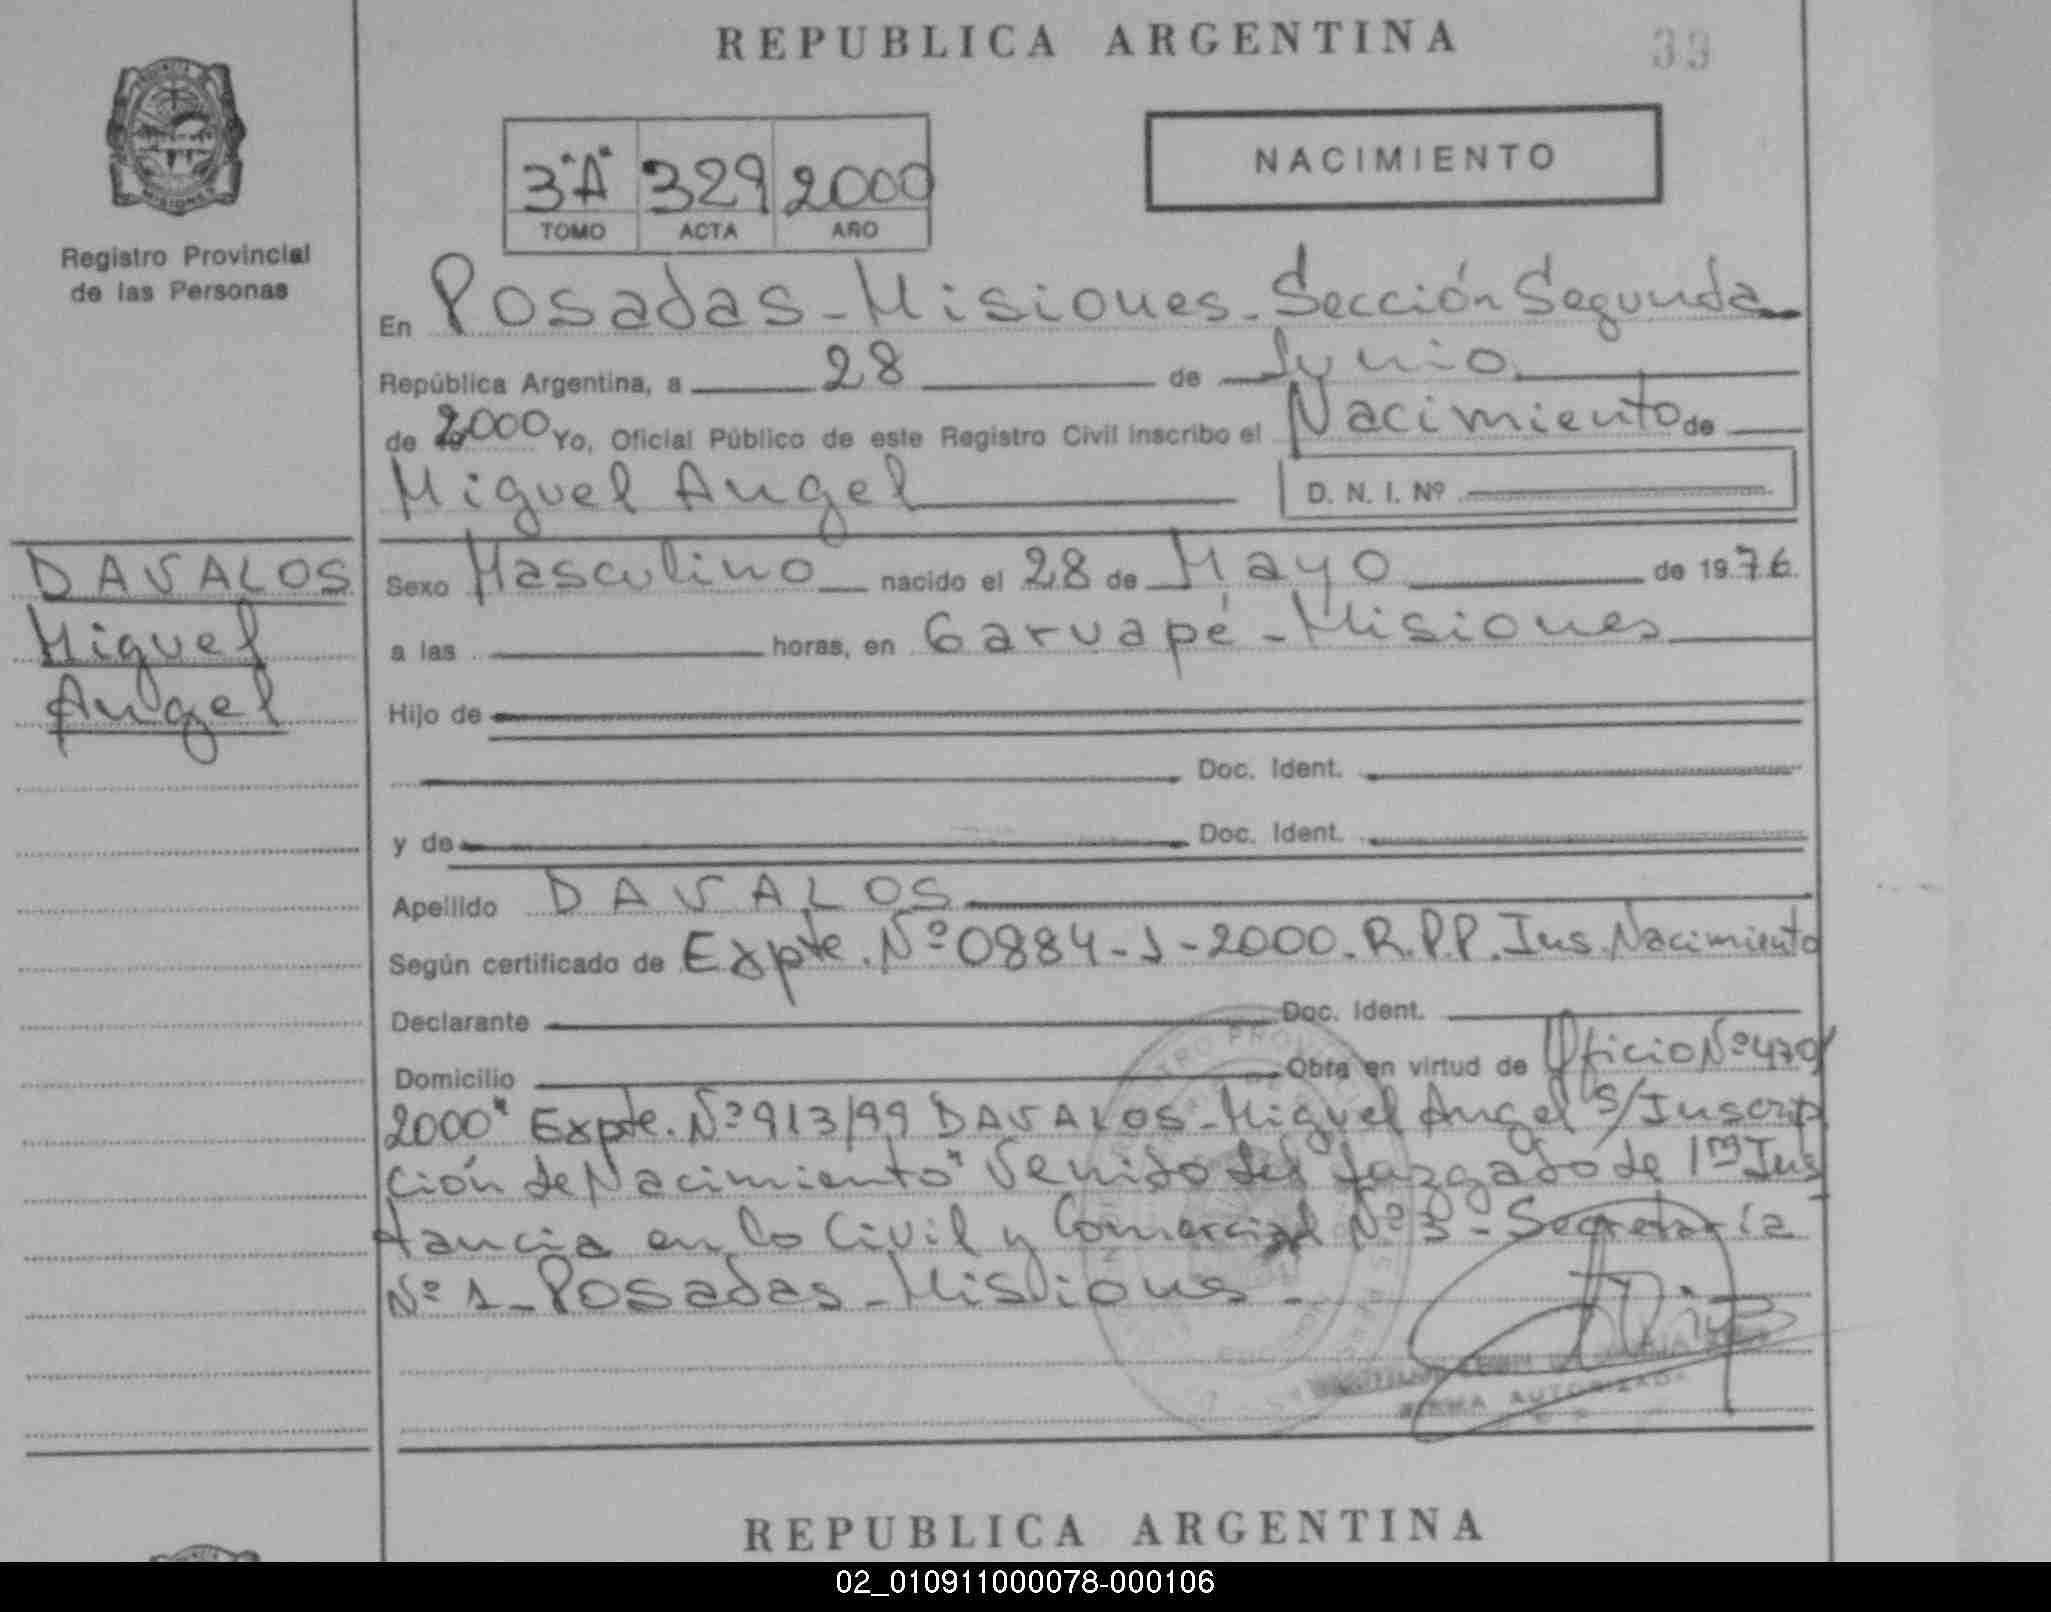 REPUBLICA ARGENTINA
33
NACIMIENTO
3"A" 329 2000
TOMO ACTA AÑO
Registro Provincial
de las Personas
En Posadas - Misiones - Sección Segunda
República Argentina, a 28 de Junio
de 2000 Yo, Oficial Público de este Registro Civil inscribo el Nacimiento de
Miguel Angel D. N. I. Nº
DAVALOS
Miguel
Angel
Sexo Masculino nacido el 28 de Mayo de 1976.
a las horas, en Garuapé - Misiones
Hijo de
Doc. Ident.
y de Doc. Ident.
Apellido DAVALOS
Según certificado de Expte. Nº 0884-J-2000. R.P.P. Ins. Nacimiento
Declarante Doc. Ident.
Domicilio Obra en virtud de Oficio Nº 470/
2000" Expte. Nº 913/99 DAVALOS - Miguel Angel s/Inscrip
ción de Nacimiento" Venido del Juzgado de 1ra Ins
tancia en lo Civil y Comercial Nº 3 - Secretaría
Nº 1 - Posadas - Misiones -
FIRMA AUTORIZADA
REPUBLICA ARGENTINA
02_010911000078-000106